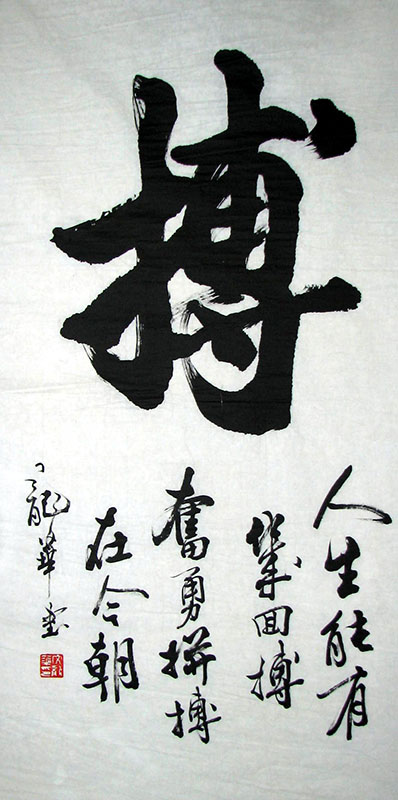 搏
人生能有
几回搏
奋勇拼搏
在今朝
龍華書